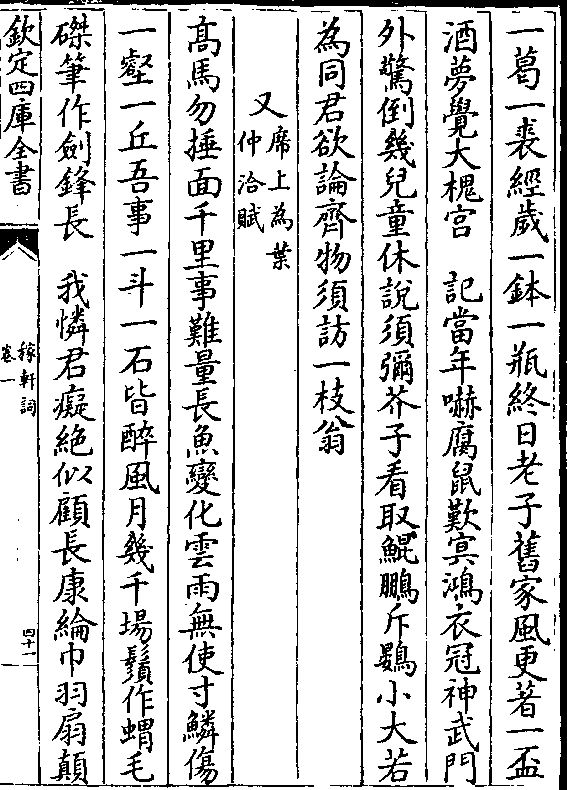 一葛一裘經歲一鉢一瓶終日老子舊家風更著一盃
酒夢覺大槐宮　記當年嚇腐鼠歎冥鴻衣冠神武門
外驚倒幾兒童休說須彌芥子看取鯤鵬斥鷃小大若
為同君欲論齊物須訪一枝翁
又席上為葉
仲洽賦
髙馬勿捶面千里事難量長魚變化雲雨無使寸鱗傷
一壑一丘吾事一斗一石皆醉風月幾千場鬚作蝟毛
磔筆作劍鋒長　我憐君癡絶似顧長康綸巾羽扇顛
欽定四庫全書
稼軒詞
卷一
四十一